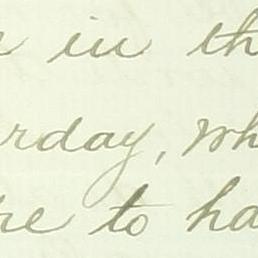 in th
rday, wh
re to ha